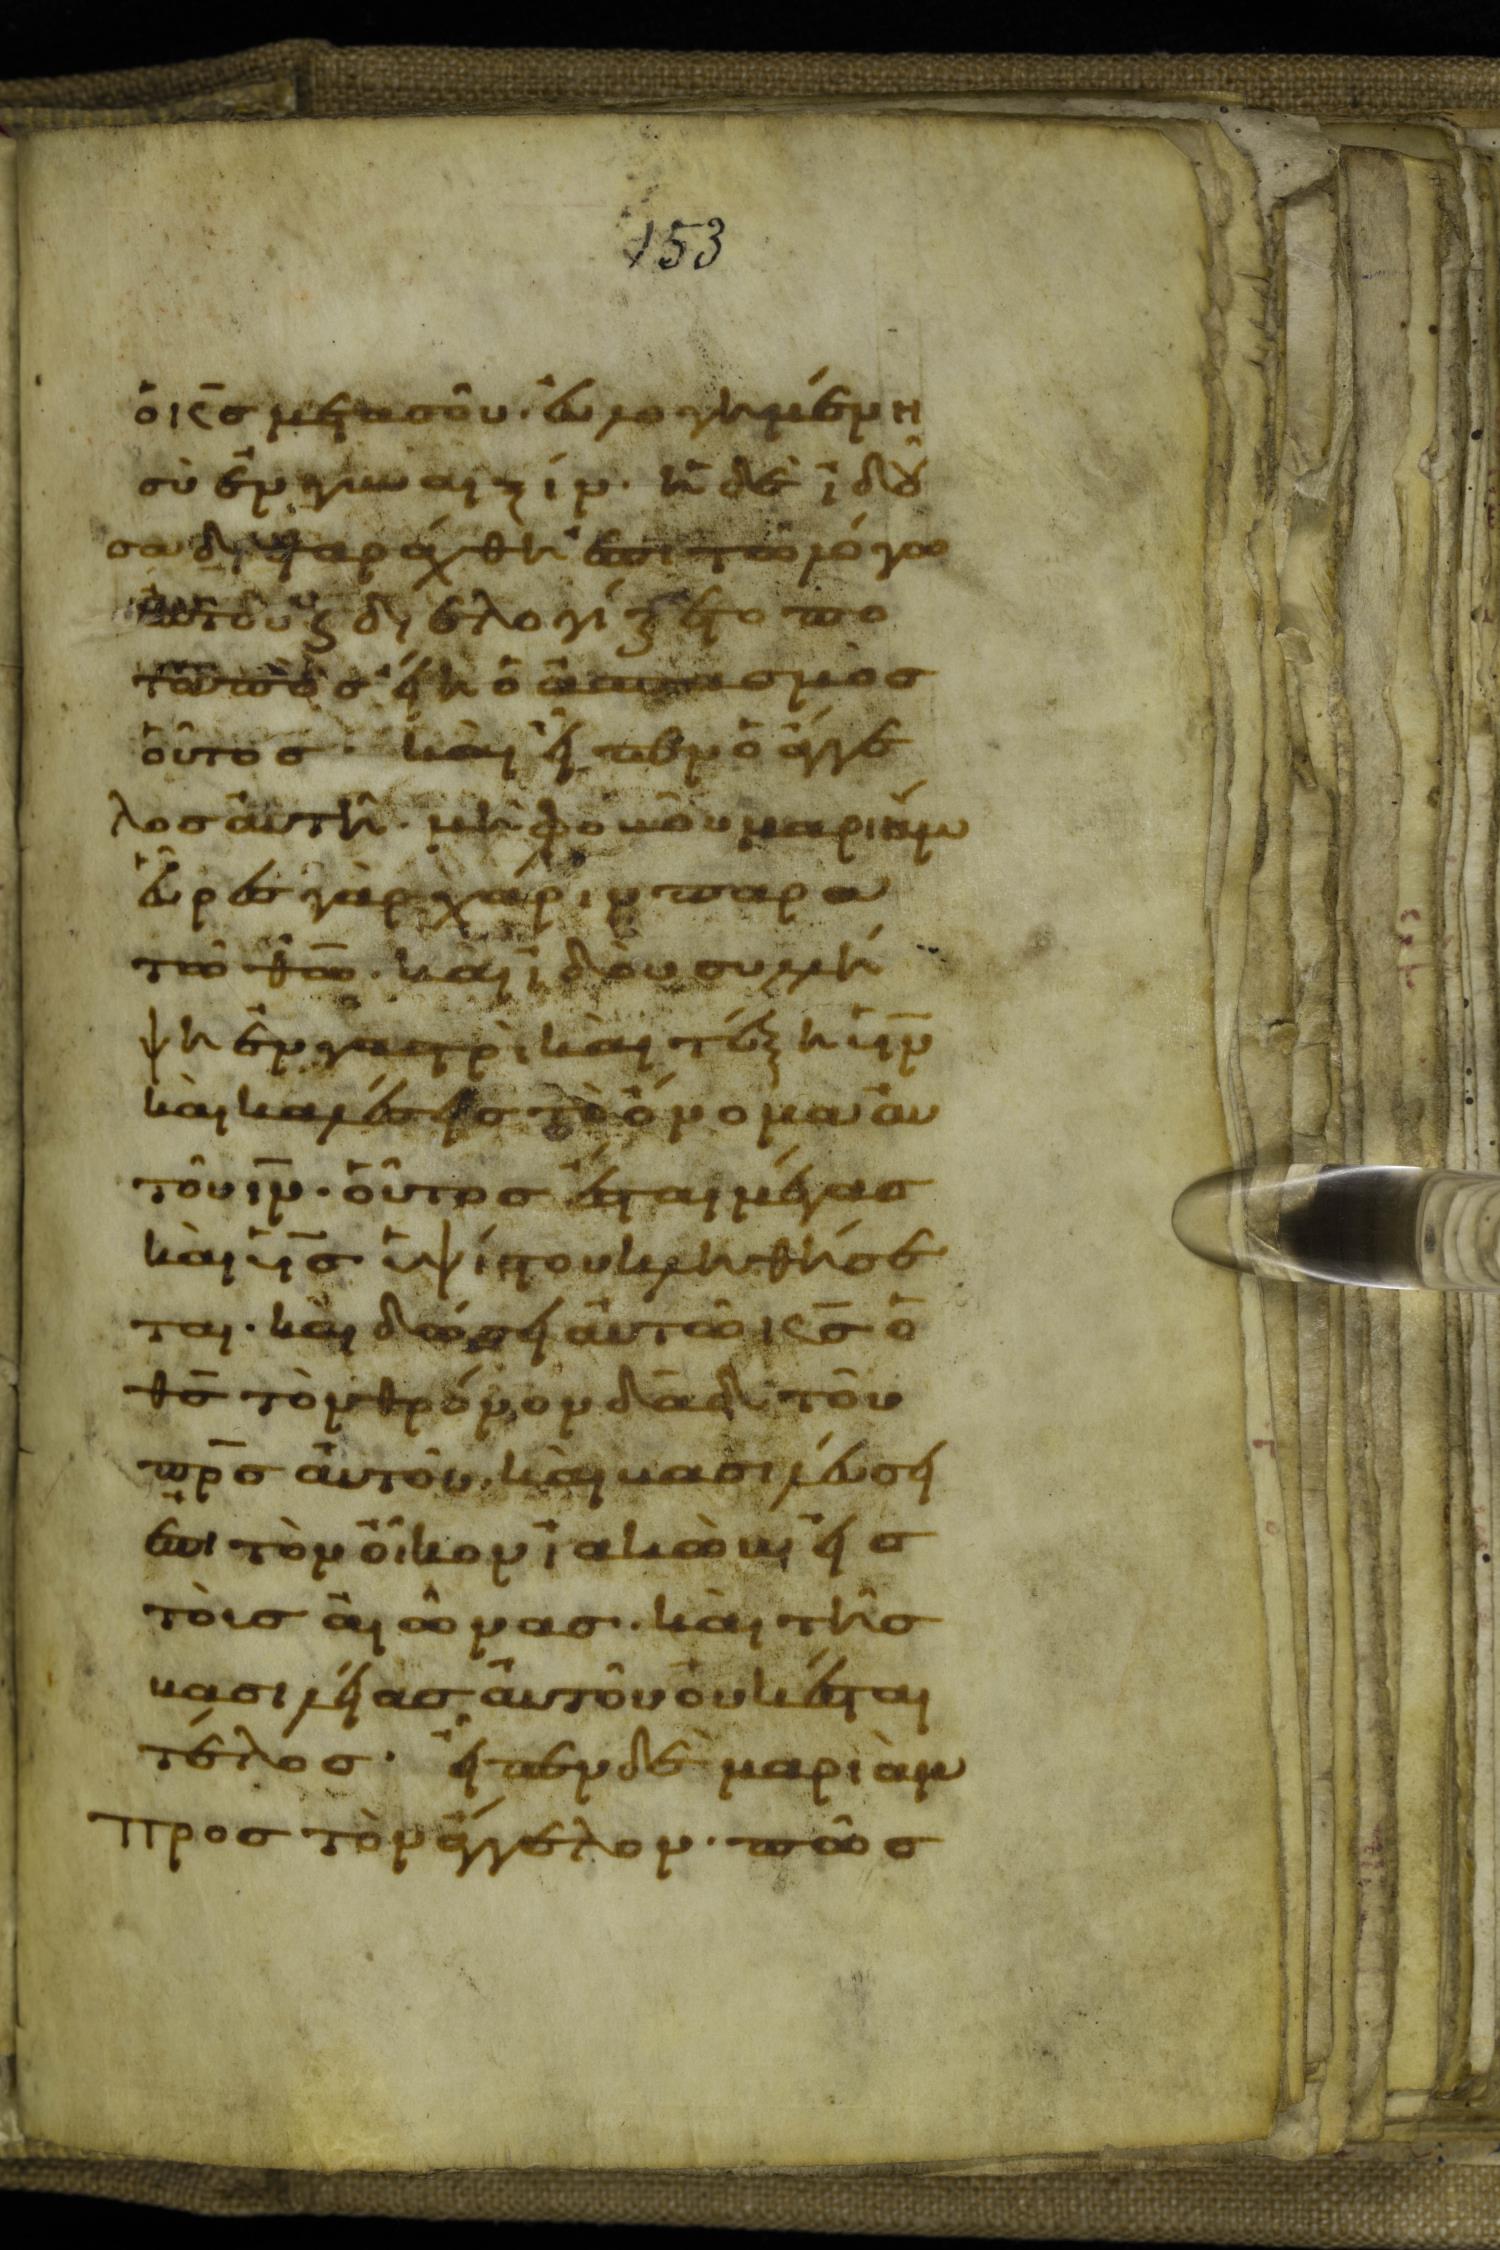 153
ὁ κ̅ς̅ μετὰ σοῦ· εὐλογημένη
σὺ ἐν γυναιξίν· ἡ δὲ ἰδοῦ
σα διεταράχθη ἐπὶ τῶ λόγω
αὐτοῦ ϗ διελογίζετο πο
ταπὸς εἴη ὁ ἀσπασμὸς
οὗτος· καὶ εἶπεν ὁ ἄγγε
λος αὐτῆ· μὴ φοβοῦ μαριάμ
εὗρες γὰρ χάριν παρα
τῶ θ̅ω̅· καὶ ἰδοὺ συλλή
ψη ἐν γαστρὶ καὶ τέξη υἱν̅
καὶ καλέσεις τὸ ὄνομα αὐ
τοῦ ι̅ν̅· οὗτος ἔσται μέγας
καὶ υἱς̅ ὑψίστου κληθήσε
ται· καὶ δώσει αὐτῶ κ̅ς̅ ὁ
θ̅ς̅ τὸν θρόνον δ̅α̅δ̅ τοῦ
π̅ρ̅ς̅ αὐτοῦ· καὶ βασιλεύσει
ἐπι τὸν οἶκον ἰακὼβ εἰς
τοὺς αἰῶνας· καὶ τῆς
βασιλείας αὐτοῦ οὐκ ἔσται
τέλος· εἶπεν δὲ μαριὰμ
προς τὸν ἄγγελον· πῶς